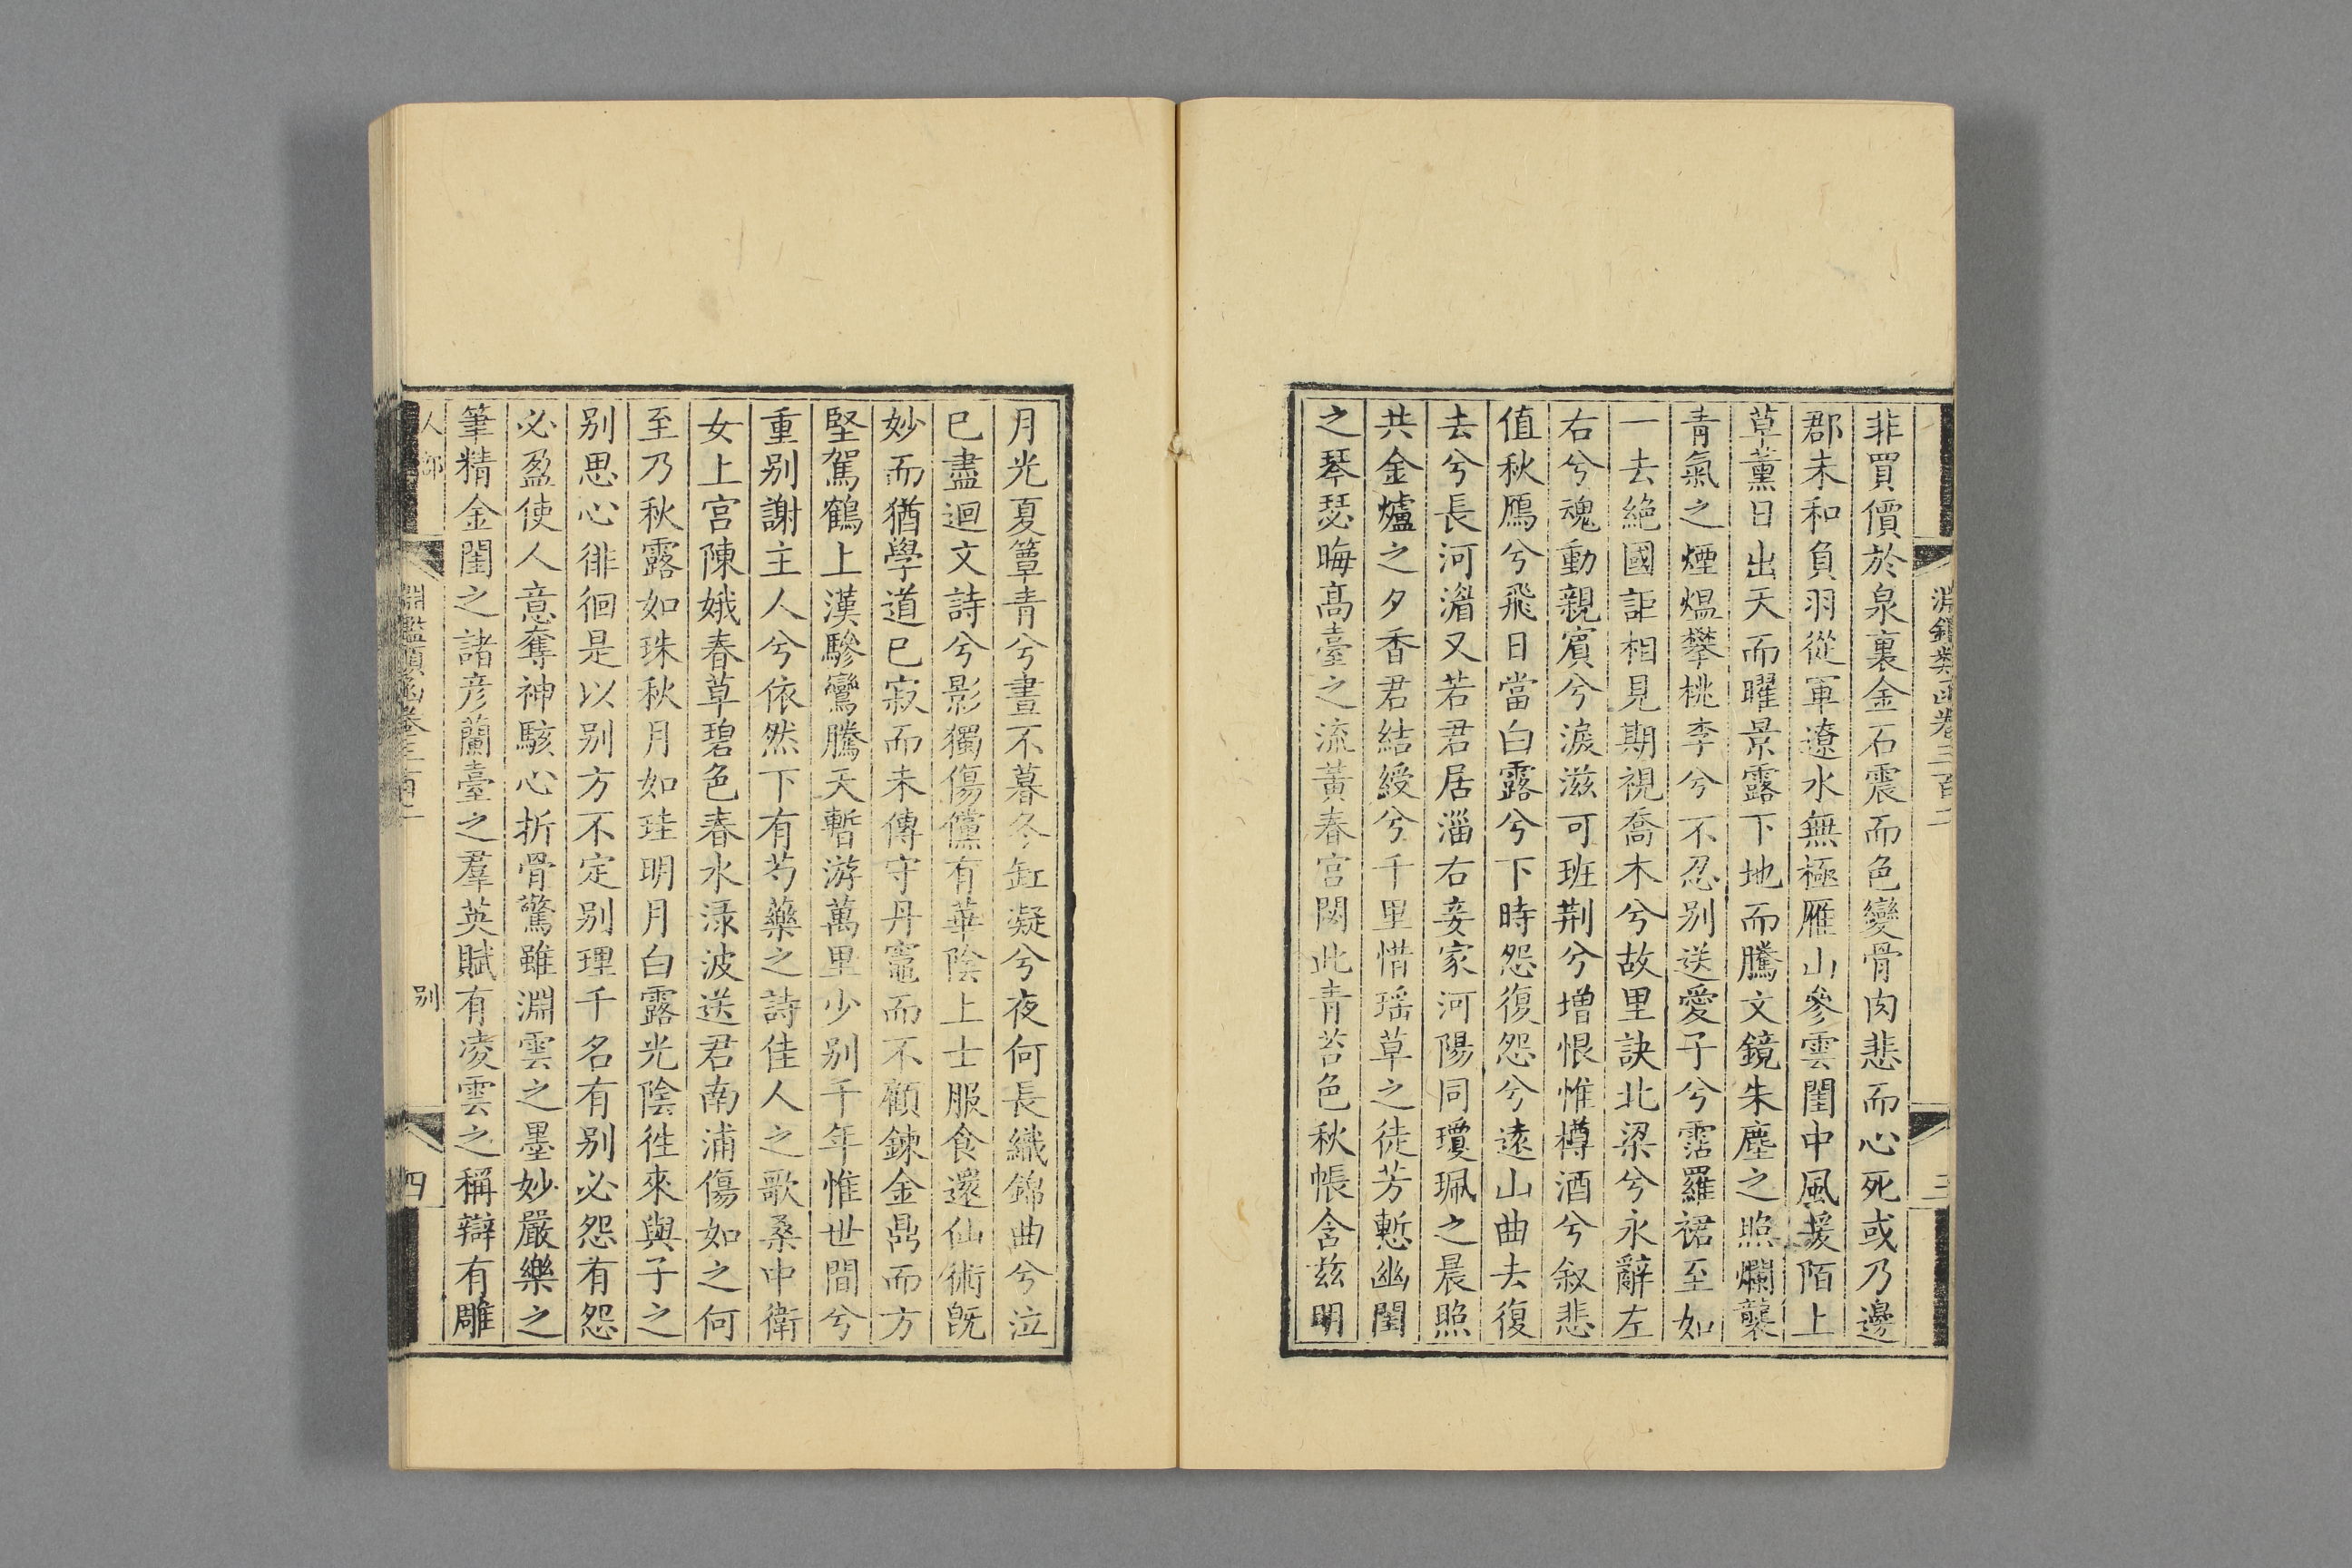 淵鑑類函卷三百二
三
非買價於泉裏金石震而色變骨肉悲而心死或乃邊
郡未和負羽從軍遼水無極雁山參雲閨中風援陌上
草薰日出天而曜景露下地而騰文鏡朱塵之照爛襲
青氣之煙熅攀桃李兮不忍別送愛子兮霑羅裙至如
一去絕國詎相見期視喬木兮故里訣北梁兮永辭左
右兮魂動親賓兮淚滋可班荆兮增恨惟樽酒兮叙悲
值秋鴈兮飛日當白露兮下時怨復怨兮遠山曲去復
去兮長河湄又若君居淄右妾家河陽同瓊珮之晨照
共金爐之夕香君結綬兮千里惜瑤草之徒芳慙幽閨
之琴瑟晦高臺之流黃春宮閟此青苔色秋帳含茲明
月光夏簟青兮晝不暮冬缸凝兮夜何長織錦曲兮泣
已盡迴文詩兮影獨傷儻有華陰上士服食還仙術既
妙而猶學道已寂而未傳守丹竈而不顧鍊金鼎而方
堅駕鶴上漢驂鸞騰天暫游萬里少别千年惟世間兮
重别謝主人兮依然下有芍藥之詩佳人之歌桑中衛
女上宮陳娥春草碧色春水渌波送君南浦傷如之何
至乃秋露如珠秋月如珪明月白露光陰徃來與子之
别思心徘徊是以别方不定别理千名有别必怨有怨
必盈使人意奪神駭心折骨驚雖淵雲之墨妙嚴樂之
筆精金閨之諸彦蘭臺之羣英賦有凌雲之稱辯有雕
人部
淵鑑類函卷三百二
别
四